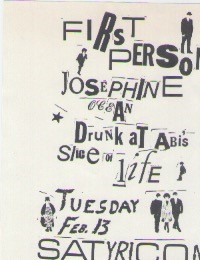 FIRST
PERSON
JOSEPHINE
OCEAN
A
DRUNK AT ABI'S
SLICE OF LIFE
TUESDAY
FEB. 13
SATYRICON